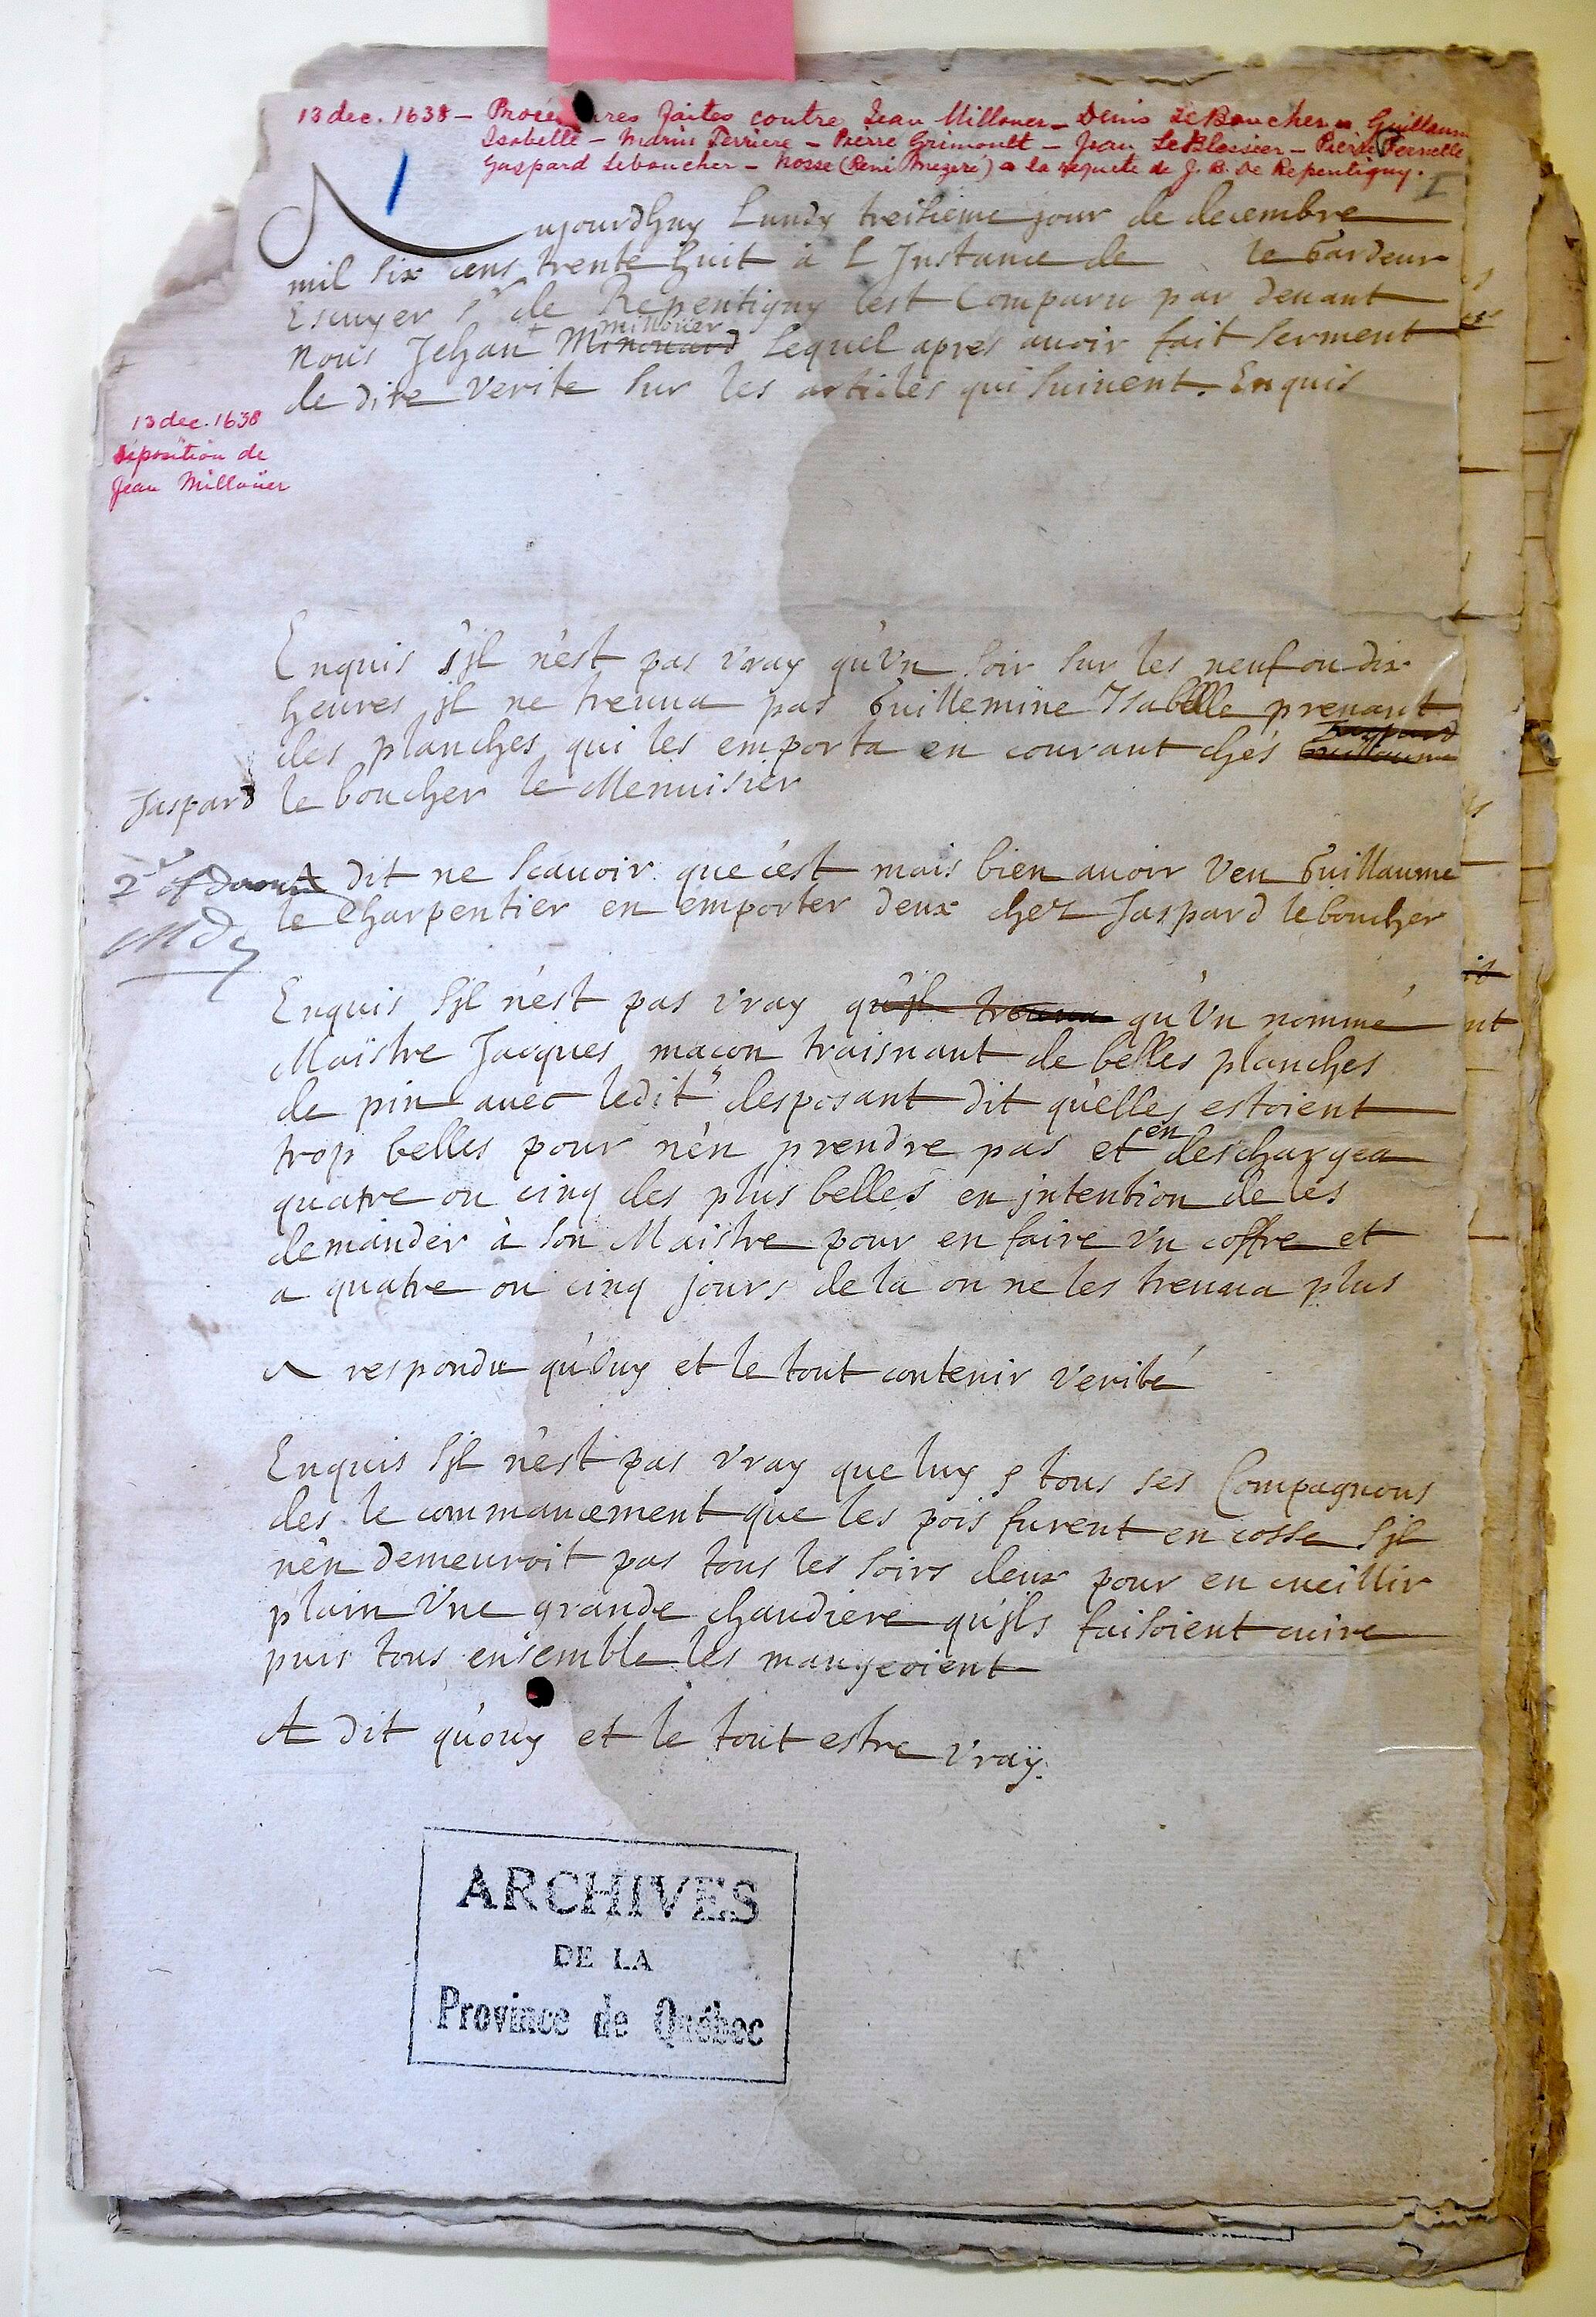 13 dec. 1638 – Procédures faites contre Jean Millouer – Denis Le Boucher – Guillaume
Isabelle – Marin Terriere – Pierre Grimoult – Jean Le Blosier – Pierre Pernelle
Gaspard Leboucher – Nosse (René Mezeré) a la requete de J. B. De Repentigny.
1
I
Aujourdhuy Lundy treisieme jour de decembre
mil six cens trente huit à L Instance de le Gardeur
Escuyer Sr de Repentigny est Comparu par devant
millouer
nous Jehan + Minouard Lequel apres avoir fait serment
de dire verite sur les articles qui suivent. Enquis
13 dec. 1638
déposition de
Jean Millouer
Enquis s'jl n'est pas vray qu'Vn soir sur les neuf ou dix
heures jl ne treuva pas Guillemine Ysabelle prenant
Jaspard
des planches qui les emporta en courant chés Guillaume
Jaspard le boucher le Menuisier
A dit ne scavoir que c'est mais bien avoir veu Guillaume
le Charpentier en emporter deux chez Jaspard le boucher
2
Enquis s'jl n'est pas vray qu'jl treuva qu'Vn nommé
Maistre Jacques maçon traisnant de belles planches
de pin avec ledit desposant dit qu'elles estoient
en
trop belles pour n'en prendre pas et deschargea
quatre ou cinq des plus belles en jntention de les
demander à son Maistre pour en faire vn coffre et
a quatre ou cinq jours de la on ne les treuva plus
A respondu qu'ouy et le tout contenir verité
Enquis s'jl n'est pas vray que luy & tous ses Compagnons
des le commancement que les pois furent en cosse s'jl
n'en demeuroit pas tous les soirs deux pour en cueillir
plain vne grande chaudiere qu'jls faisoient cuire
puis tous ensemble les mangeoient
A dit qu'ouy et le tout estre vraÿ.
ARCHIVES
DE LA
Province de Québec